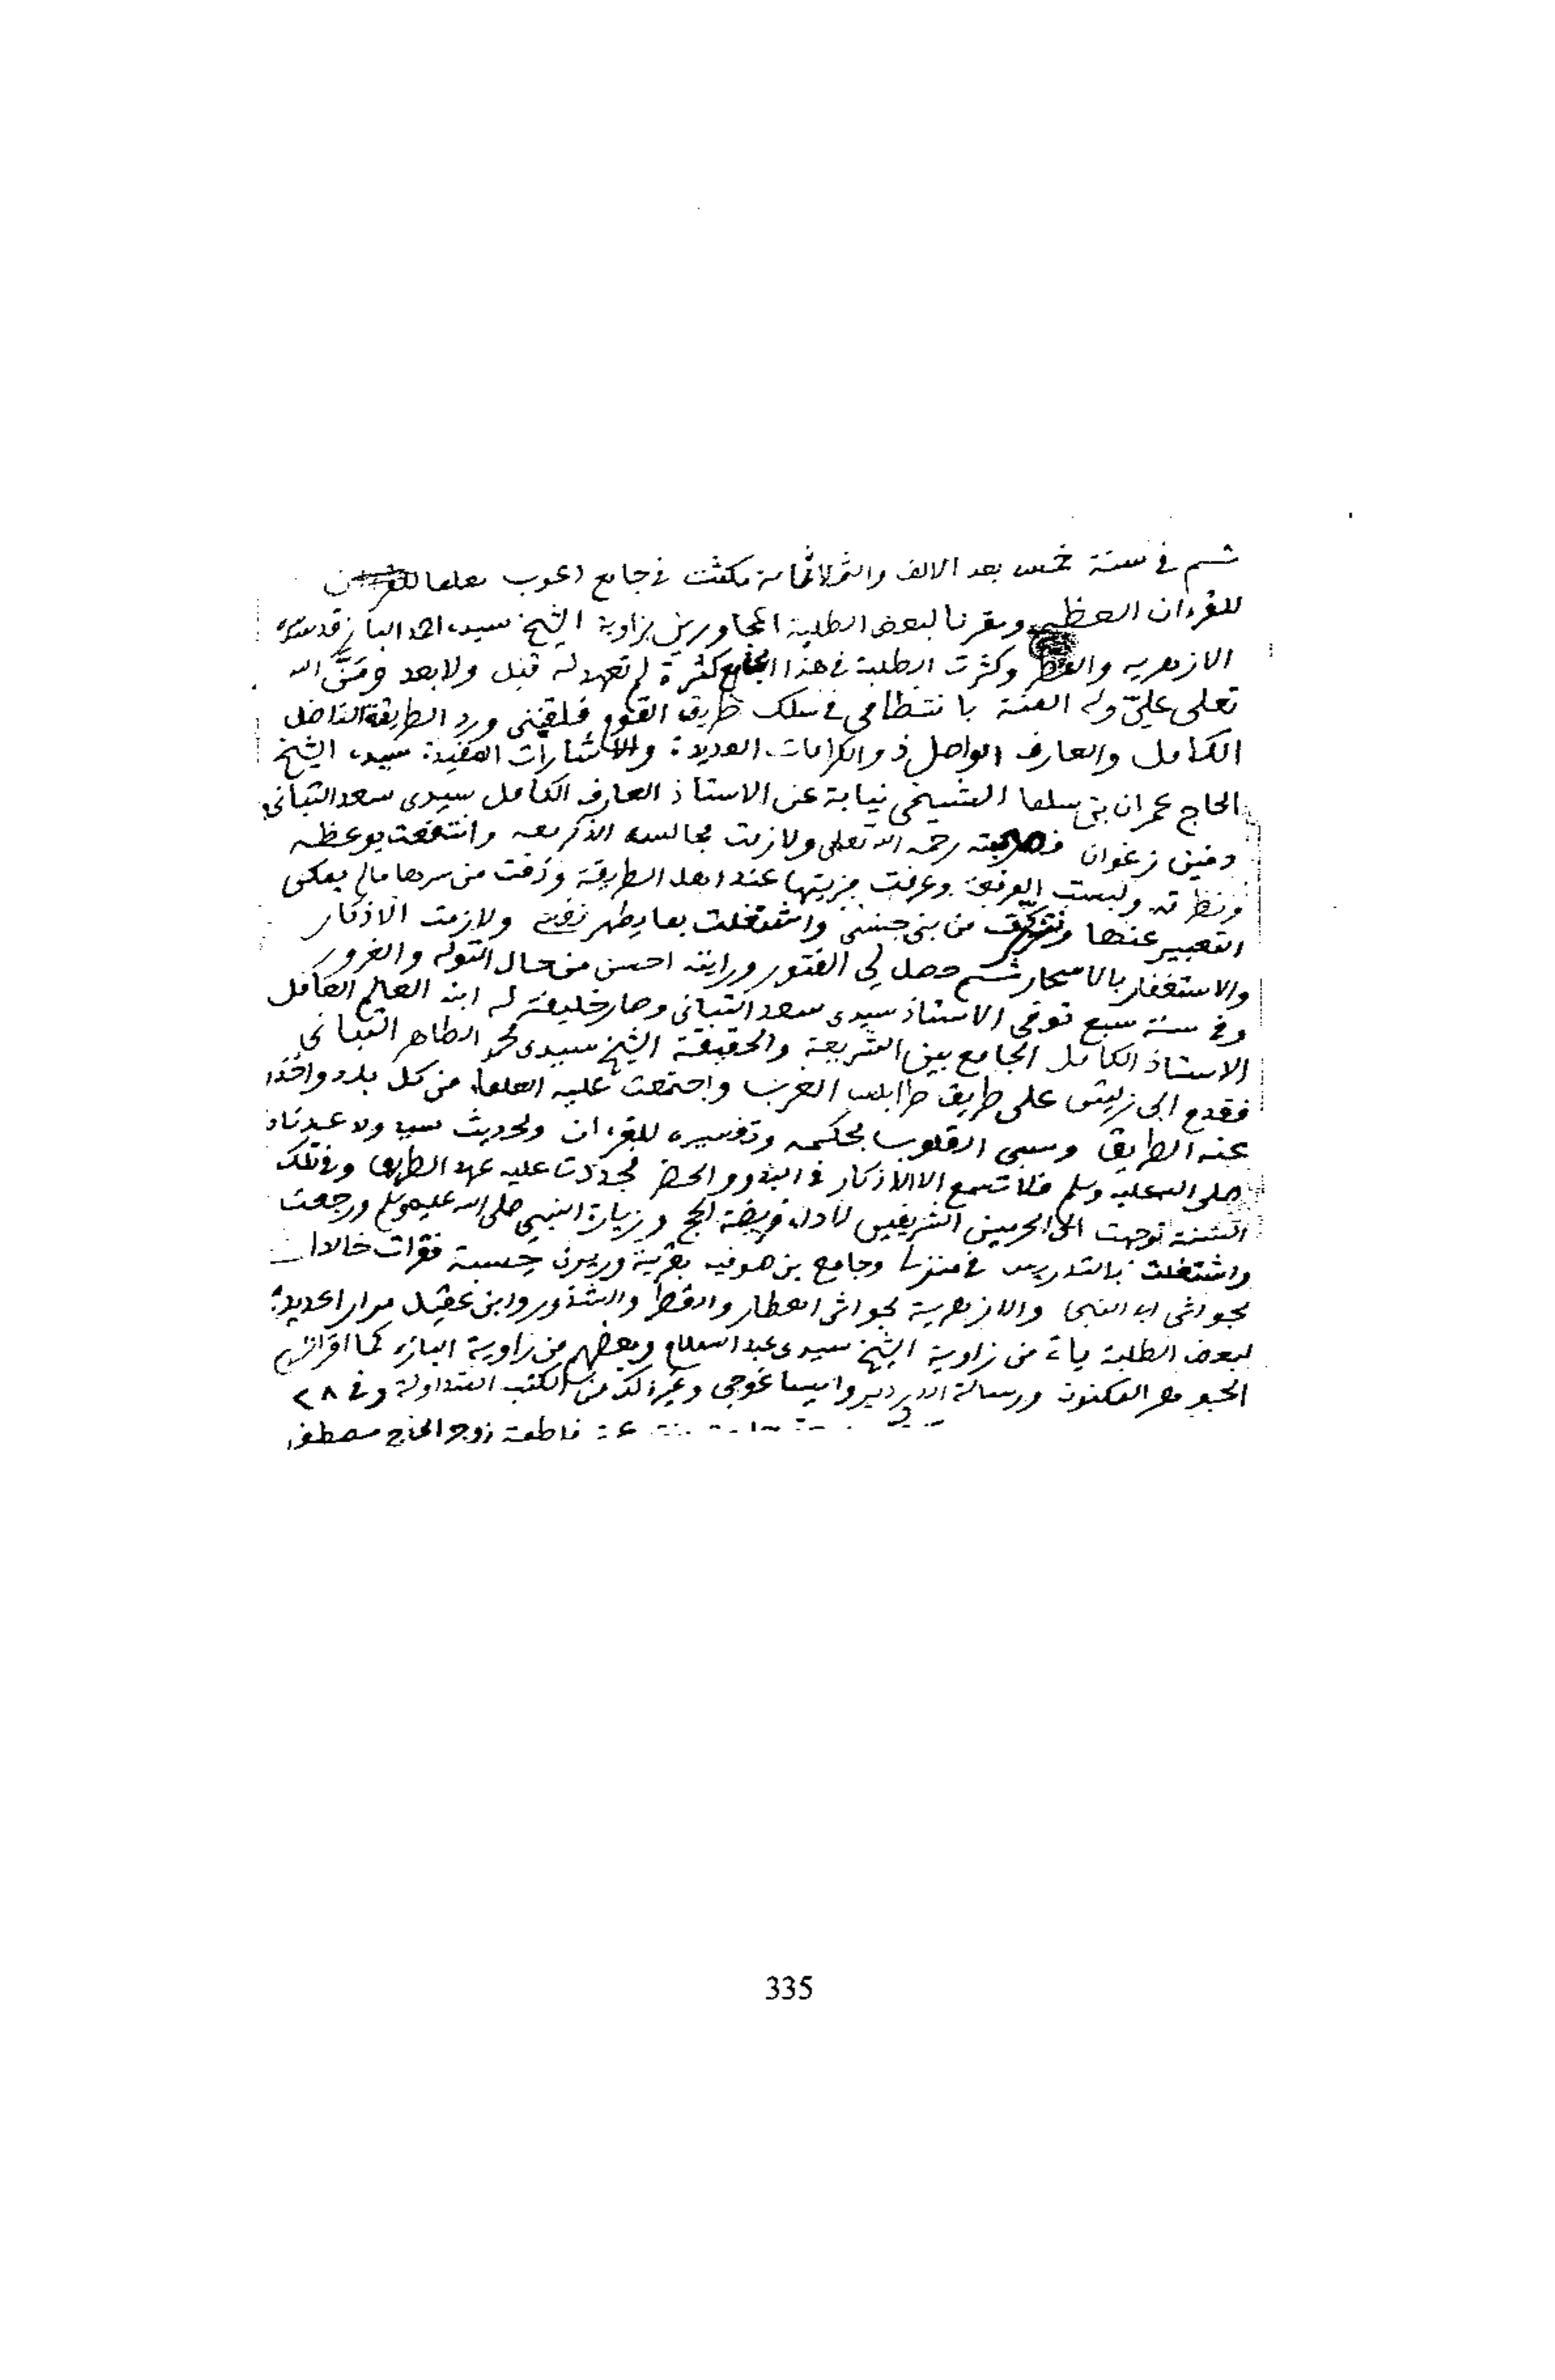 ثم في سنة خمس بعد الالف والثلاثماية مكثت في جامع معلما
للقرءان العظيم ومقرئا لبعض الطلبة المجاورين بزاوية الشيخ سيدي احمد الباز قدس سره
الازهرية والقطر وكثرت الطلبة في هذا الجامع كثرة لم تعهد له قبل ولا بعد ومَنَّ الله
تعلى عليّ وله المنة بانتظامي في سلك طريق القوم فلقنني ورد الطريقة الفاضل
الكامل والعارف الواصل ذو الكرامات العديدة والاشارات المفيدة سيدي الشيخ
الحاج عمران بن نيابة عن الاستاذ العارف الكامل سيدي سعد التباني
دفين زغوان فصحبته رحمه الله تعلى ولازمت مجالسه وانتفعت بوعظه
ونظراته ولبست وعرفت مزيتها عند اهل الطريقة وذقت من سرها مالم يمكن
التعبير عنها من بني جنسي واشتغلت بما يطهر نفسي ولازمت الاذكار
والاستغفار بالاسحار ثم حصل لي الفتور ورايته احسن من حال التوله والغرور
وفي سنة سبع توفي الاستاذ سيدي سعد التباني وصار خليفة له ابنه العالم العامل
الاستاذ الكامل الجامع بين الشريعة والحقيقة الشيخ سيدي محمد الطاهر التباني
فقدم الى زليتن على طريق طرابلس الغرب واجتمعت عليه العلماء من كل بلد واخذوا
عنه الطريق وسبى القلوب بحكمه وتفسيره للقرءان ولحديث سيد ولد عدنان
صلى الله عليه وسلم فلا تسمع الا الاذكار في البدو والحضر فجددت عليه عهد الطريق وفي تلك
السنة توجهت الى الحرمين الشريفين لاداء فريضة الحج وزيارة النبي صلى الله عليه وسلم ورجعت
واشتغلت بالتدريس في منزلي وجامع بن صوفيه بقرية حسبة فقرات خالدا
بحواشي ابي النجى والازهرية بحواشي العطار والقطر والشذور وابن عقيل مرارا عديدة
لبعض الطلبة ياتي من زاوية الشيخ سيدي عبد السلام وبعضهم من زاوية الباز كما اقراتهم
الجوهر المكنون ورسالة الدردير وايساغوجي وغير ذلك من الكتب المتداولة وفي ٢٨
فاطمة زوج الحاج مصطفى
335